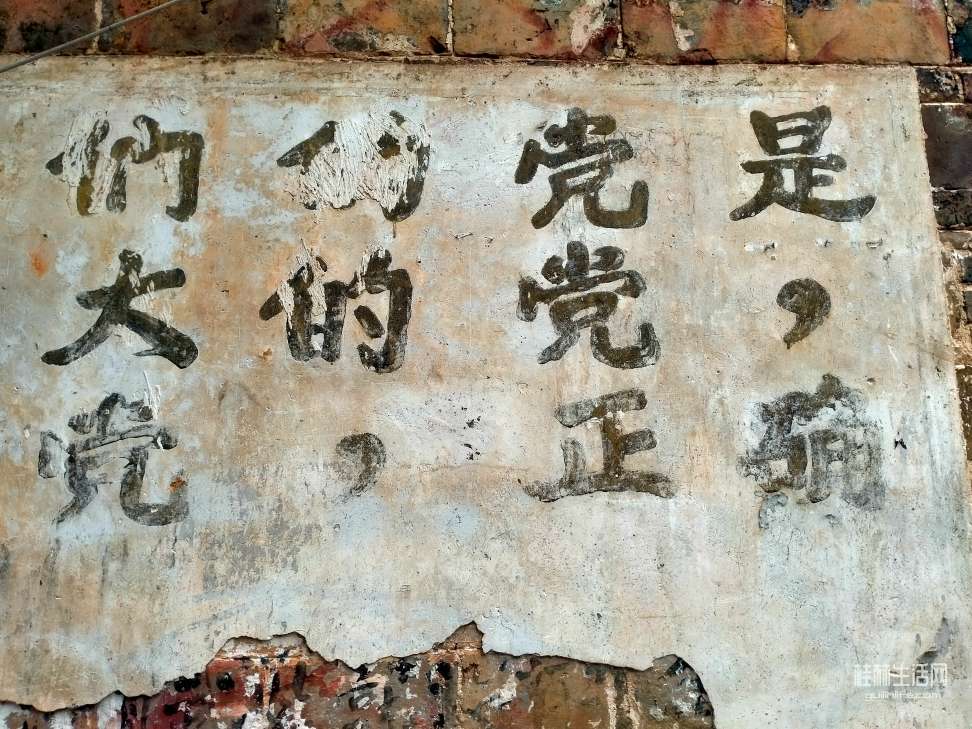 們的党是
大的党，
党，正确
桂林生活网
guilinlife.com